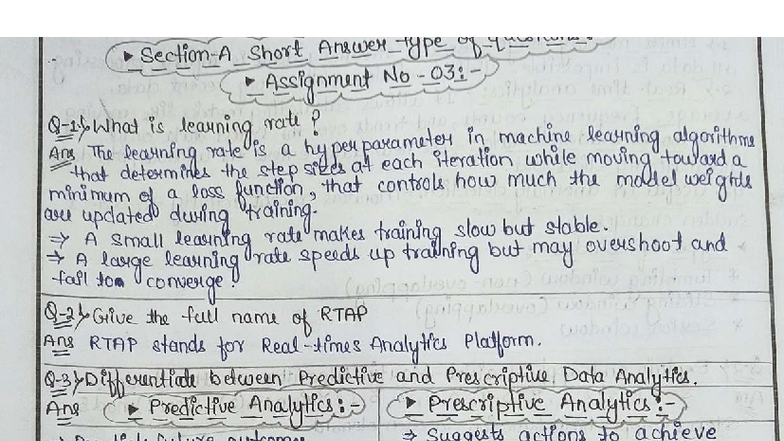 ▸ Section-A Short Answer type of questions:
▸ Assignment No - 03:-
Q-1} What is learning rate ?
Ans The learning rate is a hyperparameter in machine learning algorithms
that determines the step sizes at each iteration while moving toward a
minimum of a loss function, that controls how much the model weights
are updated during training.
⇒ A small learning rate makes training slow but stable.
⇒ A large learning rate speeds up training but may overshoot and
fail to converge.
Q-2} Give the full name of RTAP
Ans RTAP stands for Real-times Analytics Platform.
Q-3} Differentiate between Predictive and Prescriptive Data Analytics.
Ans ▸ Predictive Analytics:- ▸ Prescriptive Analytics:-
⇒ Suggests actions to achieve